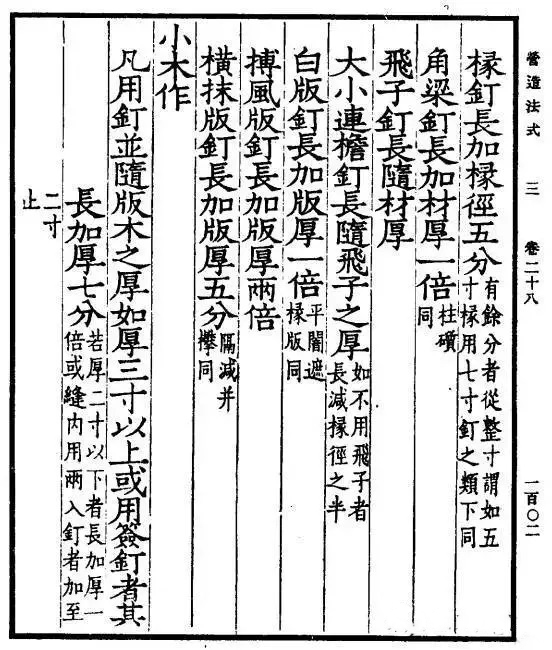 營造法式 三 卷二十八 一百〇二
椽釘長加椽徑五分有餘分者從整寸謂如五寸椽用七寸釘之類下同
角梁釘長加材厚一倍柱礩同
飛子釘長隨材厚
大小連檐釘長隨飛子之厚如不用飛子者長減椽徑之半
白版釘長加版厚一倍平闇遮椽版同
搏風版釘長加版厚兩倍
橫抹版釘長加版厚五分隔減并襻同
小木作
凡用釘並隨版木之厚如厚三寸以上或用簽釘者其
長加厚七分若厚二寸以下者長加厚一倍或縫內用兩入釘者加至
二寸止